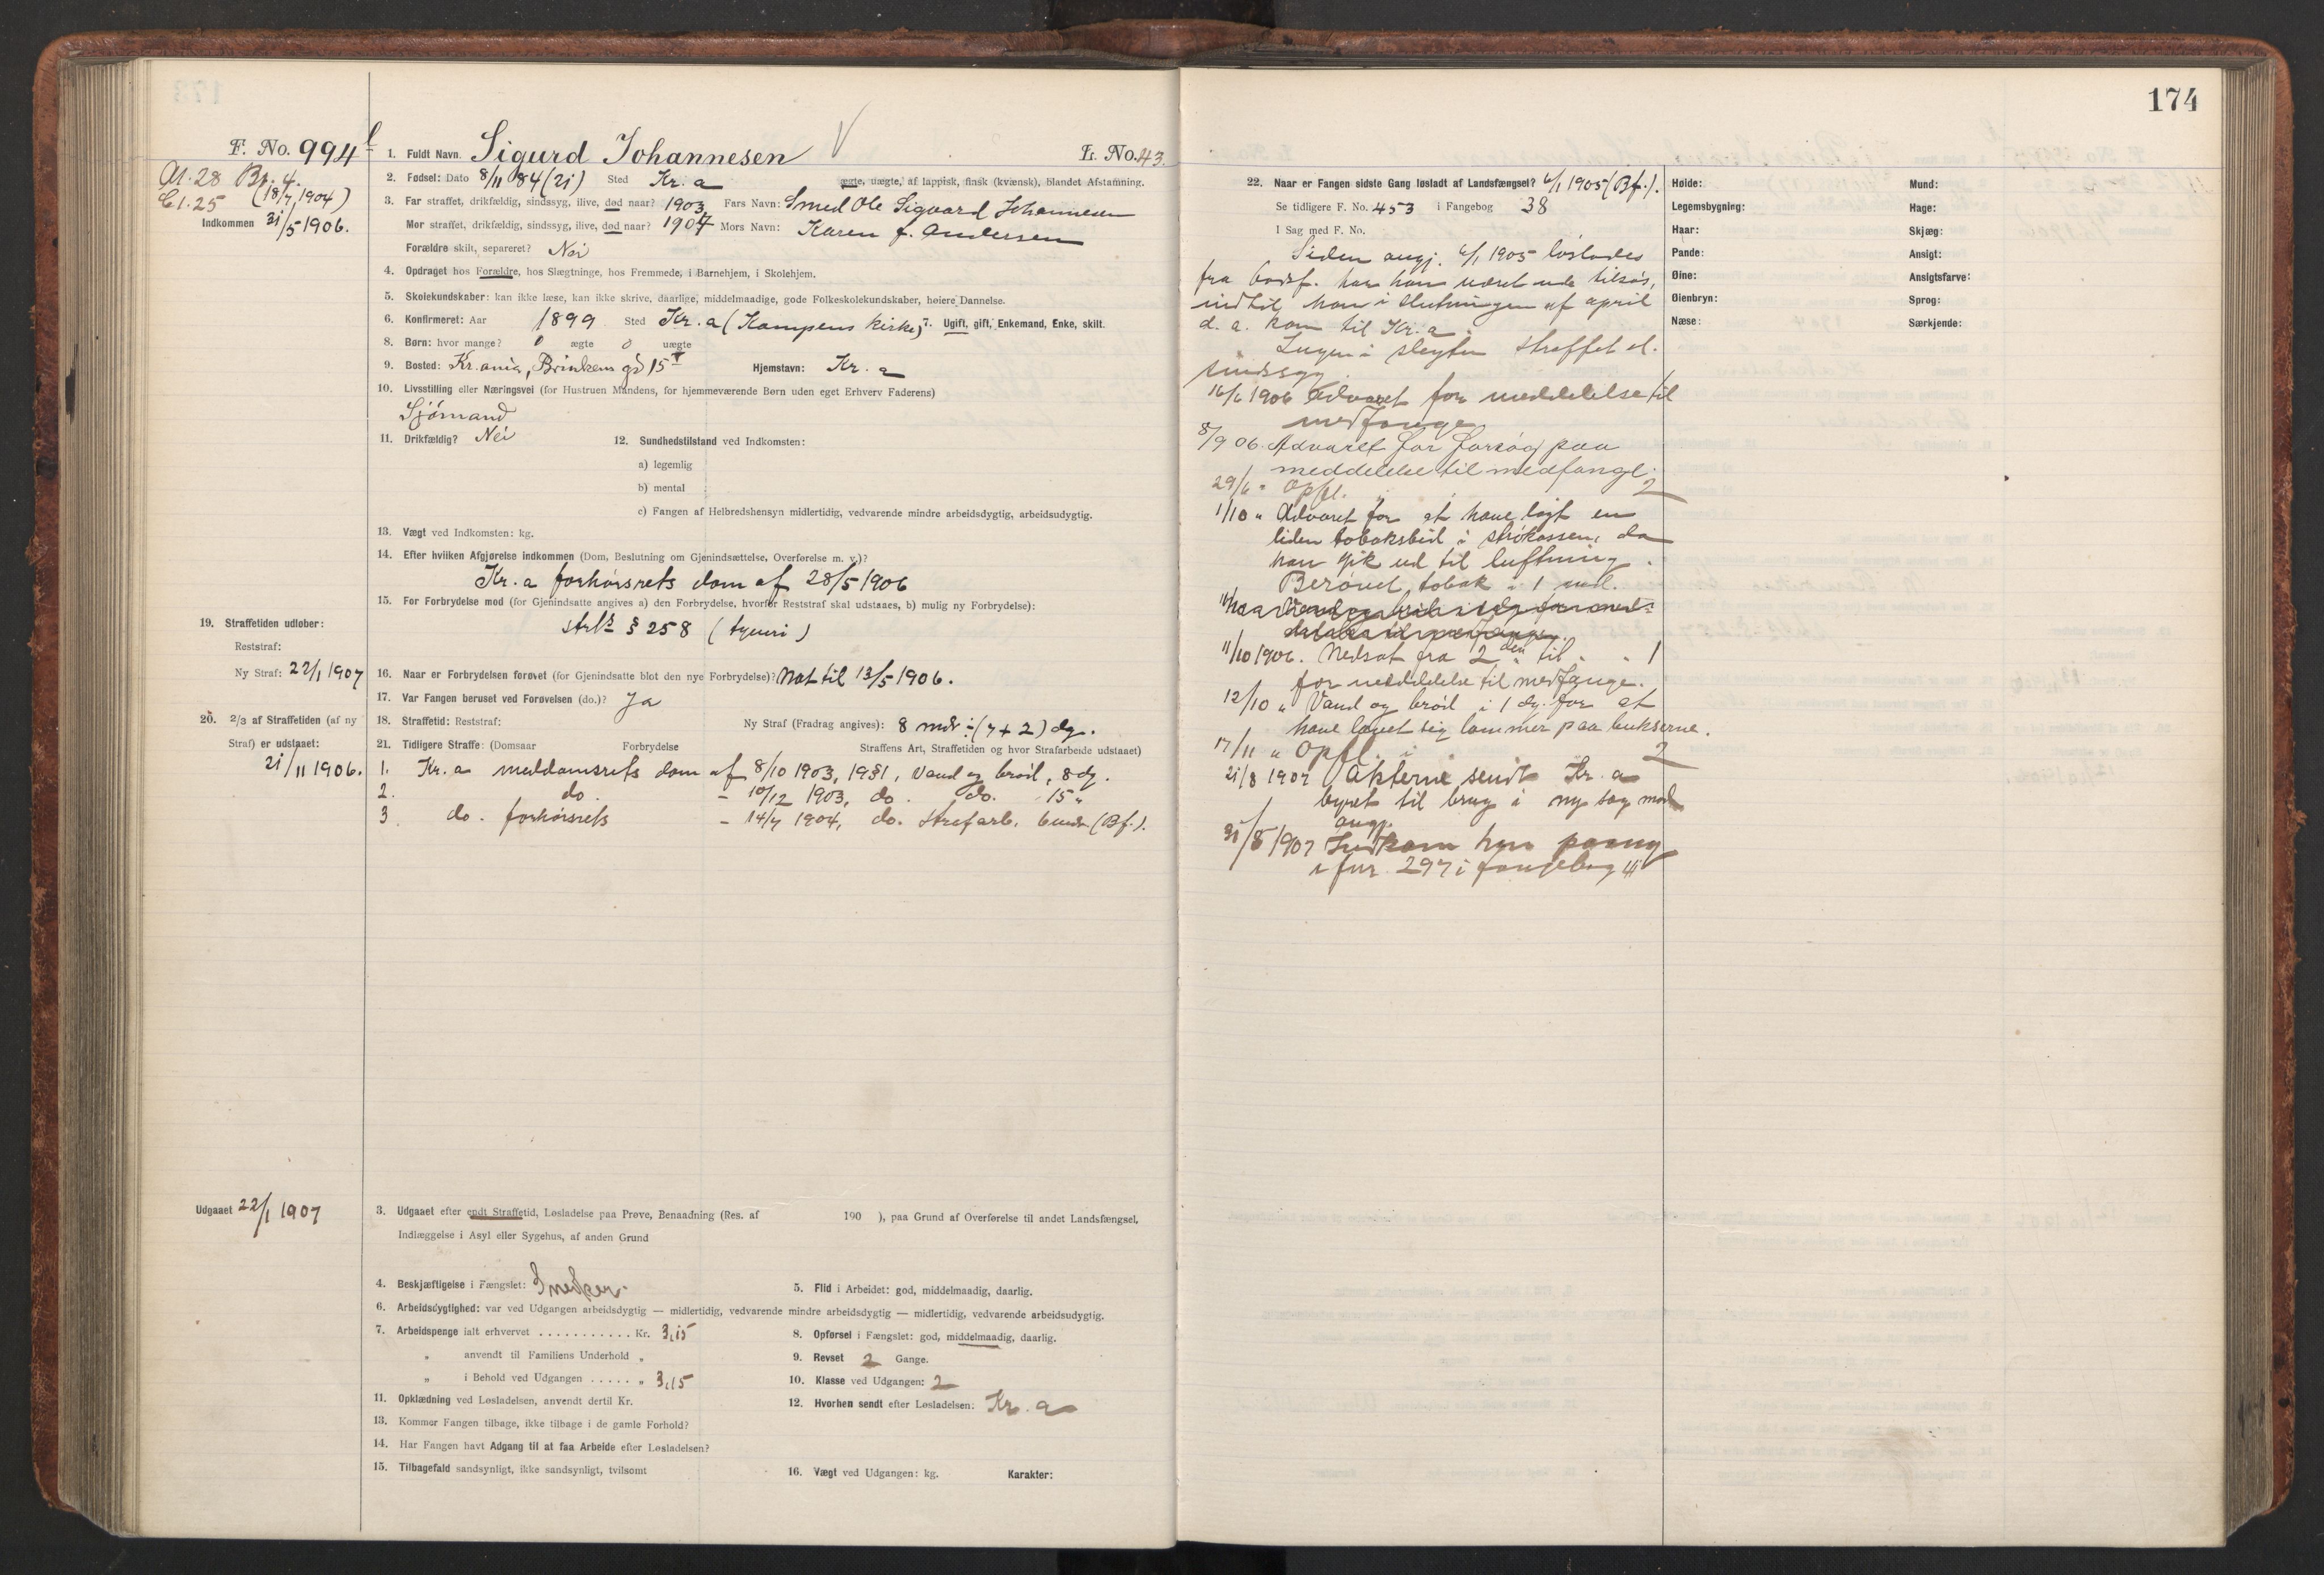 174
F. No. 994
1. Fuldt Navn. Sigurd Johannesen
L. No. 43.
A1.28 Br. 4.
C1.25 (18/7 1904)
Indkommen 31/5 1906.
2. Fødsel: Dato 8/11 84 (21) Sted Kr.a ægte, uægte, af lappisk, finsk (kvænsk), blandet Afstamning.
3. Far straffet, drikfældig, sindssyg, ilive, død naar? 1903 Fars Navn: Smed Ole Sigvard Johannesen
Mor straffet, drikfældig, sindssyg, ilive, død naar? 1904 Mors Navn: Karen f. Andersen
Forældre skilt, separeret? Nei
4. Opdraget hos Forældre, hos Slægtninge, hos Fremmede, i Barnehjem, i Skolehjem.
5. Skolekundskaber: kan ikke læse, kan ikke skrive, daarlige, middelmaadige, gode Folkeskolekundskaber, høiere Dannelse.
6. Konfirmeret: Aar 1899 Sted Kr.a (Kampens kirke) 7. Ugift, gift, Enkemand, Enke, skilt.
8. Børn: hvor mange? 0 ægte 0 uægte
9. Bosted: Kr.ania, Brinkens gd 15 Hjemstavn: Kr.a
10. Livsstilling eller Næringsvei (for Hustruen Mandens, for hjemmeværende Børn uden eget Erhverv Faderens)
Sjømand
11. Drikfældig? Nei 12. Sundhedstilstand ved Indkomsten:
a) legemlig
b) mental
c) Fangen af Helbredshensyn midlertidig, vedvarende mindre arbeidsdygtig, arbeidsudygtig.
13. Vægt ved Indkomsten: kg.
14. Efter hvilken Afgjørelse indkommen (Dom, Beslutning om Gjenindsættelse, Overførelse m. v.)?
Kr.a forhørsrets dom af 28/5 1906
15. For Forbrydelse mod (for Gjenindsatte angives a) den Forbrydelse, hvorfor Reststraf skal udstaaes, b) mulig ny Forbrydelse):
strl § 258 (tyveri)
19. Straffetiden udløber:
Reststraf:
Ny Straf: 22/1 1907
16. Naar er Forbrydelsen forøvet (for Gjenindsatte blot den nye Forbrydelse)? Nat til 13/5 1906.
17. Var Fangen beruset ved Forøvelsen (do.)? Ja
20. 2/3 af Straffetiden (af ny
Straf) er udstaaet:
21/11 1906.
18. Straffetid: Reststraf: Ny Straf (Fradrag angives): 8 mdr ÷ (7 + 2) dg.
21. Tidligere Straffe: (Domsaar Forbrydelse Straffens Art, Straffetiden og hvor Strafarbeide udstaaet)
1. Kr.a meddomsrets dom af 8/10 1903, 19§1, Vand og brød, 8 dg.
2. do. - 10/12 1903, do. do. 15 "
3. do. forhørsrets - 14/7 1904, do. Strafarb. 6 mdr (Bf.).
Udgaaet 22/1 1907
3. Udgaaet efter endt Straffetid, Løsladelse paa Prøve, Benaadning (Res. af 190 ), paa Grund af Overførelse til andet Landsfængsel,
Indlæggelse i Asyl eller Sygehus, af anden Grund
4. Beskjæftigelse i Fængslet: Snekker. 5. Flid i Arbeidet: god, middelmaadig, daarlig.
6. Arbeidsdygtighed: var ved Udgangen arbeidsdygtig — midlertidig, vedvarende mindre arbeidsdygtig — midlertidig, vedvarende arbeidsudygtig.
7. Arbeidspenge ialt erhvervet . . . . . . . . . . . Kr. 3,15 8. Opførsel i Fængslet: god, middelmaadig, daarlig.
" anvendt til Familiens Underhold " 9. Revset 2 Gange.
" i Behold ved Udgangen . . . . . " 3,15 10. Klasse ved Udgangen: 2
11. Opklædning ved Løsladelsen, anvendt dertil Kr. 12. Hvorhen sendt efter Løsladelsen: Kr.a
13. Kommer Fangen tilbage, ikke tilbage i de gamle Forhold?
14. Har Fangen havt Adgang til at faa Arbeide efter Løsladelsen?
15. Tilbagefald sandsynligt, ikke sandsynligt, tvilsomt 16. Vægt ved Udgangen: kg. Karakter:
22. Naar er Fangen sidste Gang løsladt af Landsfængsel? 6/1 1905 (Bf.).
Se tidligere F. No. 453 i Fangebog 38
I Sag med F. No.
Siden angj. 6/1 1905 løslodes
fra bodsf. har han været ude tilsøs,
indtil han i slutningen af april
d. a. kom til Kr.a.
Ingen i slegten straffet el.
sindssyg.
16/6 1906 Advaret for meddelelse til
medfange
8/9 06. Advaret for forsøg paa
meddelelse til medfange.
29/6 " Opfl. 2
1/10 " Advaret for at have lagt en
liden tobaksbid i skokassen, da
han gik ud til luftning.
Berøvet tobak i 1 md.
11/10 1906. Nedsat fra 2den til " " 1
for meddelelse til medfange.
12/10 " Vand og brød i 1 dg. for at
have lavet sig lommer paa bukserne.
17/11 " Opfl. 2
21/8 1907 Akterne sendt Kr.a
byret til brug i ny sag mod
angj.
31/8 1907 Indkom hun paany
i fnr. 297 i fangebog
Høide:
Legemsbygning:
Haar:
Pande:
Øine:
Øienbryn:
Næse:
Mund:
Hage:
Skjæg:
Ansigt:
Ansigtsfarve:
Sprog:
Særkjende: